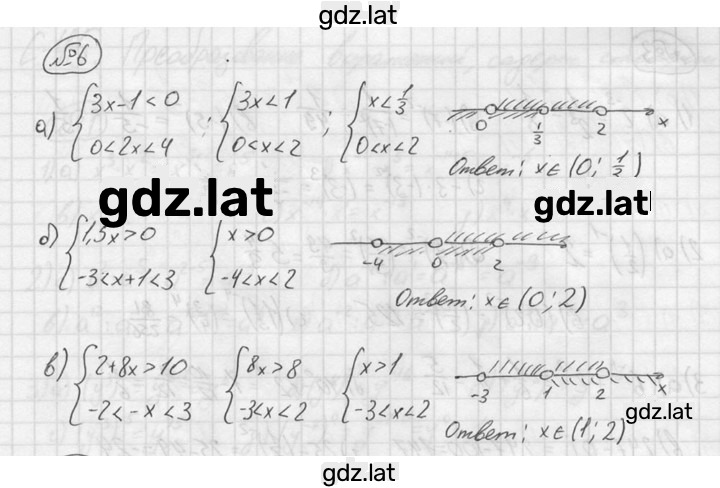 gdz.lat
№6
а) { 3x-1<0 ; { 3x<1 ; { x<1/3
0<2x<4 0<x<2 0<x<2
0 1/3 2 x
Ответ: x∈(0; 1/2)
gdz.lat
gdz.lat
б) { 1,5x>0 { x>0
-3<x+1<3 -4<x<2
-4 0 2
Ответ: x∈(0; 2)
в) { 2+8x>10 { 8x>8 { x>1
-2<-x<3 -3<x<2 -3<x<2
-3 1 2 x
gdz.lat
Ответ: x∈(1; 2)
gdz.lat